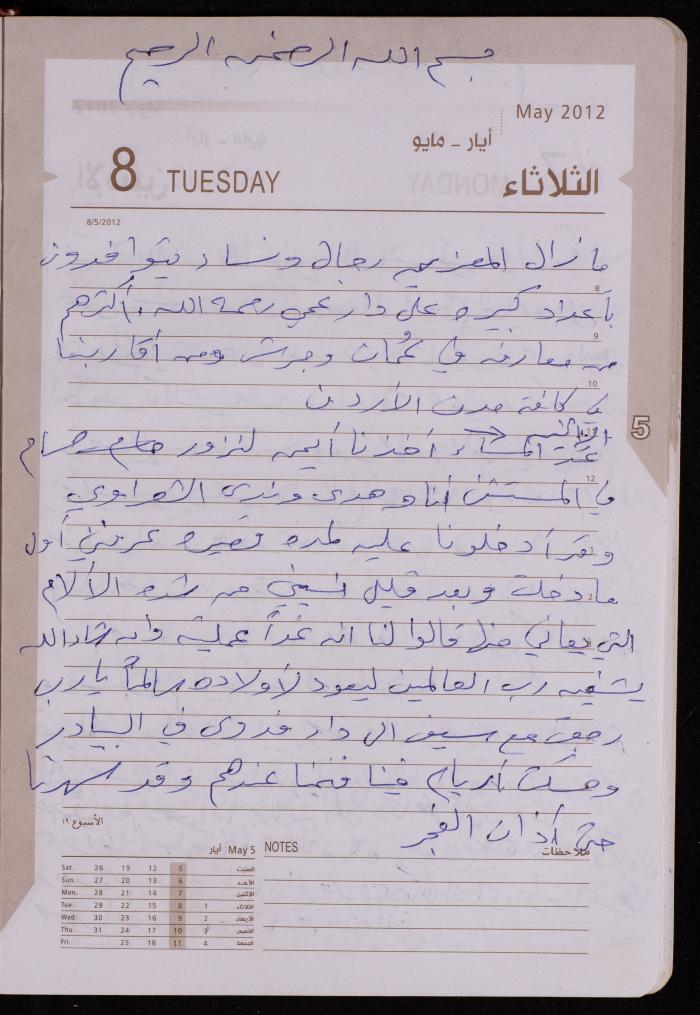 بسم الله الرحمن الرحيم
May 2012
أيار - مايو
8 TUESDAY الثلاثاء
8/5/2012
ما زال المعزين رجال ونساء يتوافدون
8
بأعداد كبيره على دار عمي رحمه الله، أكثرهم
9
من معارفه في عمّان وجرش ومن أقاربنا
10
في كافة مدن الأردن
5
عند المساء أخذنا أيمن لنزور حسام
12
في المستشفى أنا وهدى وندى الشعراوي
وقد أدخلونا عليه لمده قصيره عرفني أول
ما دخلت وبعد قليل نسيني من شده الألام
2
التي يعاني منها قالوا لنا انه غداً عملية وان شاء الله
يشفيه رب العالمين ليعود لأولاده سالماً يارب
رجعت مع سيف الى دار فدوى في البيادر
ومسكت أريام فينا فنمنا عندهم وقد سهرنا
حتى أذان الفجر
الأسبوع ١٩
أيار May 5
NOTES ملاحظات
Sat. 26 19 12 5 السبت
Sun. 27 20 13 6 الأحد
Mon. 28 21 14 7 الإثنين
Tue. 29 22 15 8 1 الثلاثاء
Wed. 30 23 16 9 2 الأربعاء
Thu. 31 24 17 10 3 الخميس
Fri. 25 18 11 4 الجمعة